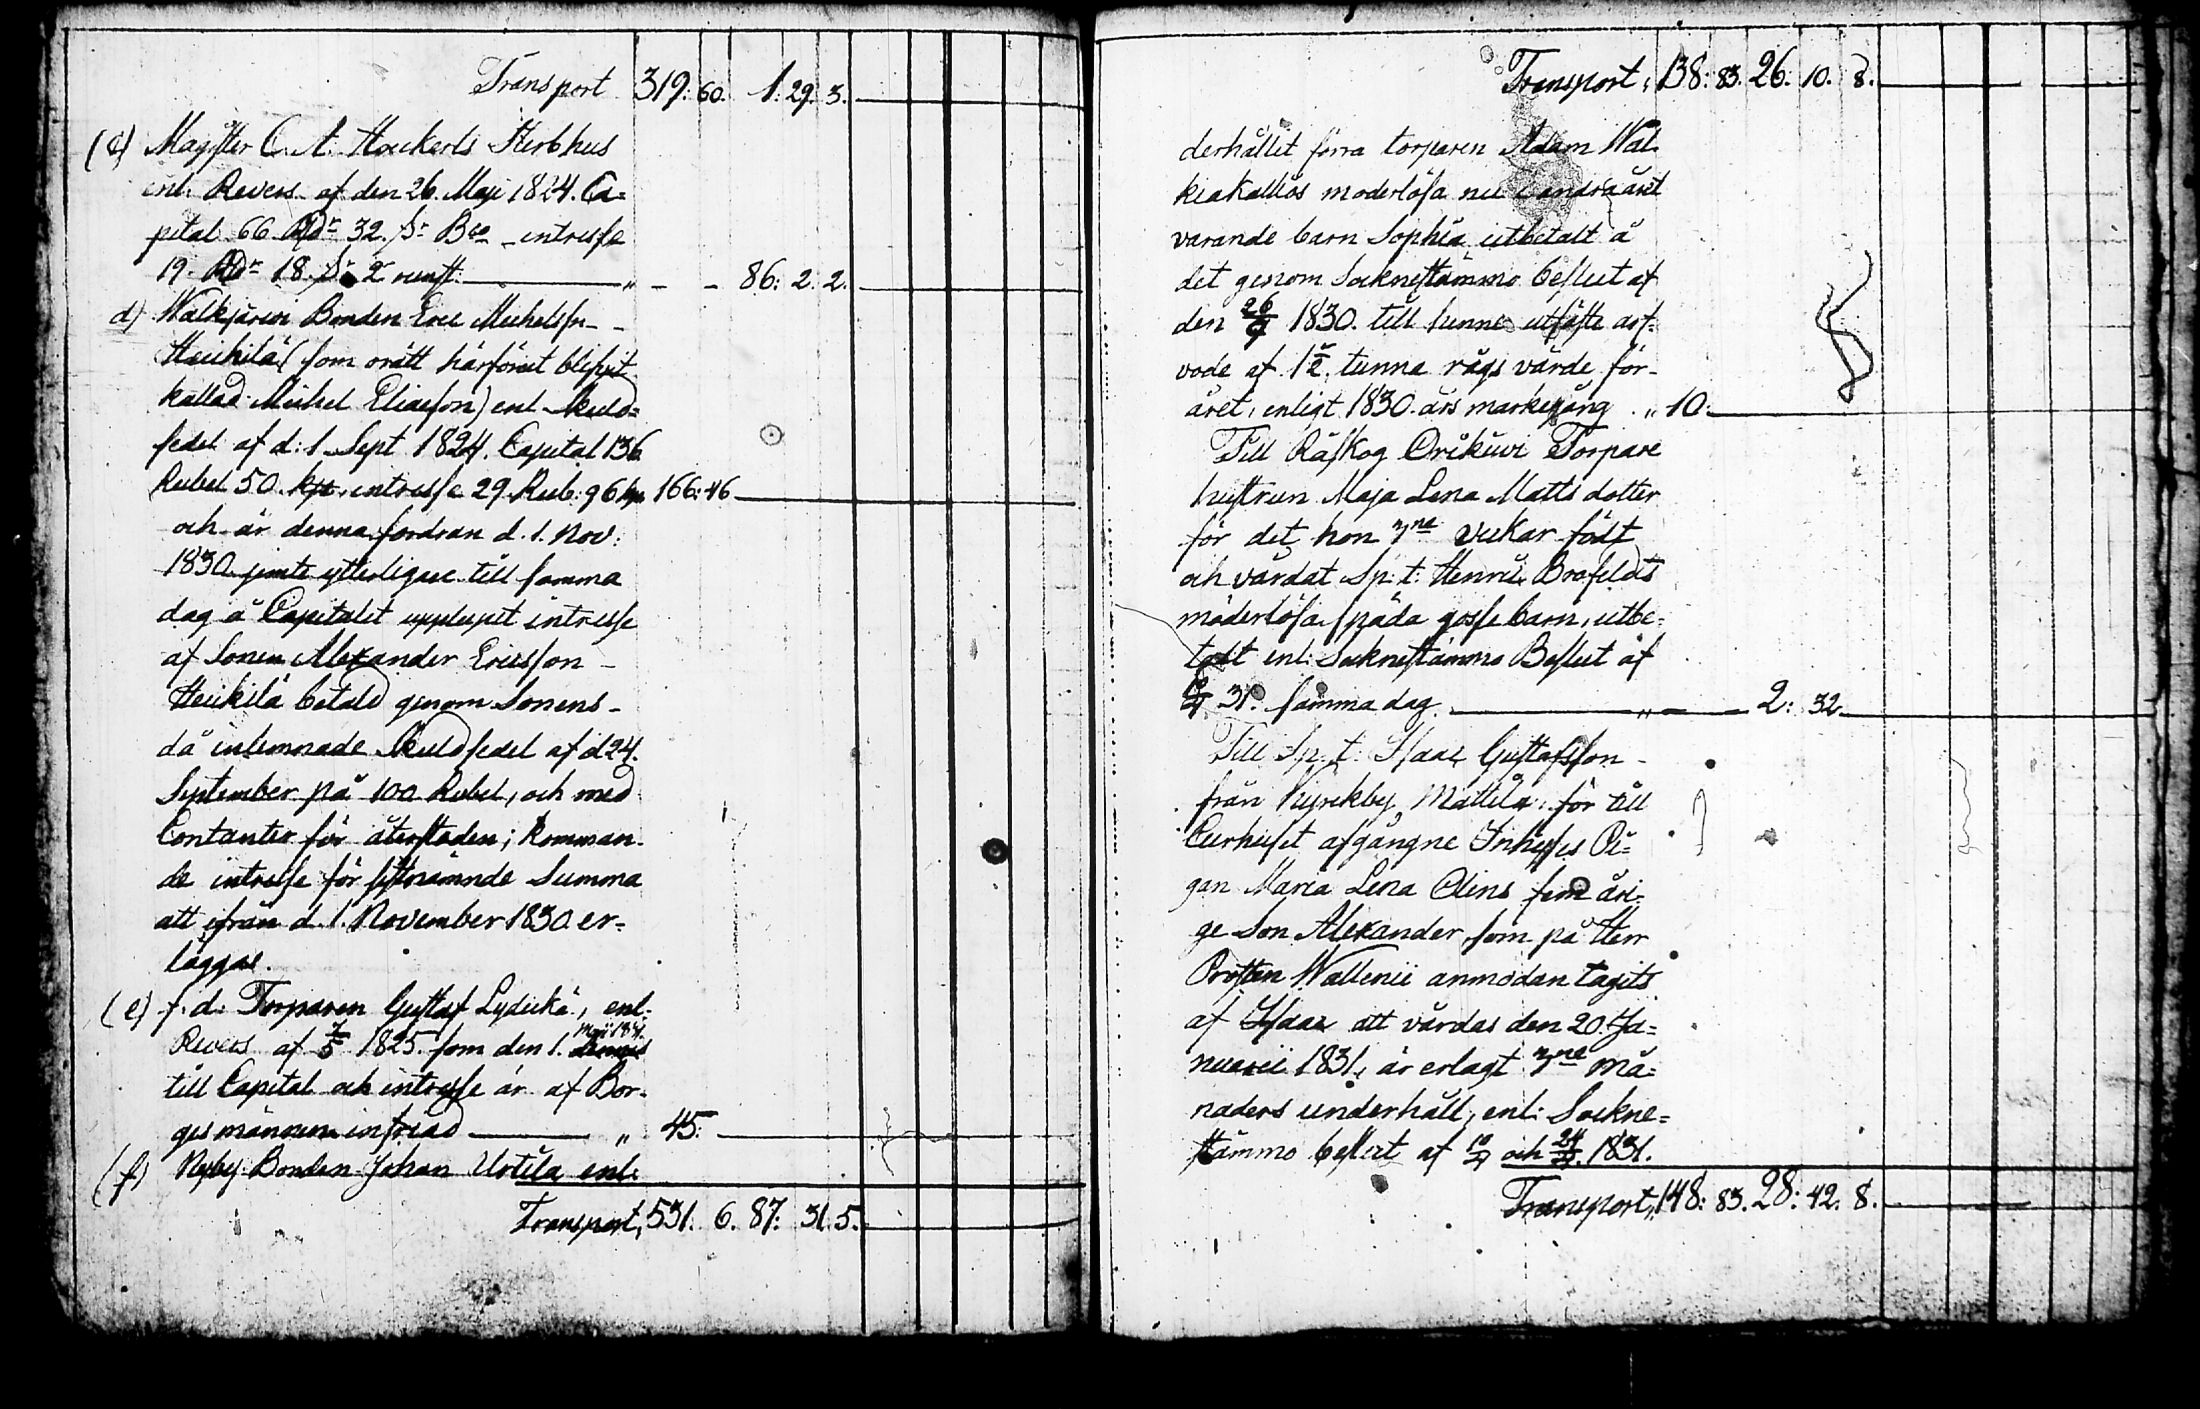 Transport 319: 60. 1: 29. 3.
(c) Magister C. A. Hockerts Sterbhus
enl. Revers af den 26. Maji 1824. Ca=
pital 66 Rdr 32. Sr Bco intresse
19. Rdr 18. Sr 2 runst: " - - 86: 2. 2.
d) Walkjärvi Bonden Eric Michelss:n
Heickilä (som orätt härförut blifvit
kallad Michel Eliasson) enl Skuld=
sedel af d: 1 Sept 1824. Capital 136
Rubel 50. kpk, intresse 29. Rub: 96 kpk 166: 46
och är denna fordran d. 1. Nov:
1830 jemte ytterligare till samma
dag å Capitalet upplupit intresse
af Sonen Alexander Ericsson
Heickilä betald genom Sonens
då inlemnade Skuldsedel af d 24.
September på 100 Rubel, och med
Contanter för återstoden; komman-
de intresse för sistnämnde Summa
att ifrån d. 1. November 1830 er=
läggas.
(e) f. d. Torparen Gustaf Lydickä, enl.
Revers af 7/5 1825 som den 1. Maji 1831.
till Capital och intresse är af Bor-
gesmännen infriad " 45:
(f) Nyby Bonden Johan Urtila enl:
Transport, 531. 6. 87: 31. 5.
Transport, 138: 83. 26. 10. 8.
derhållit förra torparen Adam Wal
kiakallios moderlösa nu i andra året
varande barn Sophia utbetalt å
det genom Socknestämmo beslut af
den 26/9 1830. till henne utfäste arf-
vode af 1 1/2 tunna rågs värde för
året, enligt 1830. års markegång " 10.
Till Råskog Orikiivi Torpare
hustrun Maja Lena Matts dotter
för det hon 7ne veckar född
och vårdat Sp: t: Henric Brofeldts
moderlösa späda gosse barn, utbe=
talt enl: Sockne stämmo Beslut af
31. samma dag. " 2: 32
Till Sp. t. Isaac Gustafsson
från Kyrckby Mattila, för till
Curhuset afgångne Inhyses Pi=
gan Maria Lena Olins fem åri-
ge Son Alexander, som på Herr
Prosten Wallenii anmodan tagits
af Isaac att vårdas den 20. Ja=
nuarii 1831, är erlagt 7ne må=
naders underhåll, enl: Sockne=
stämmo beslut af och 1831.
Transport, 148: 83. 28: 42. 8.